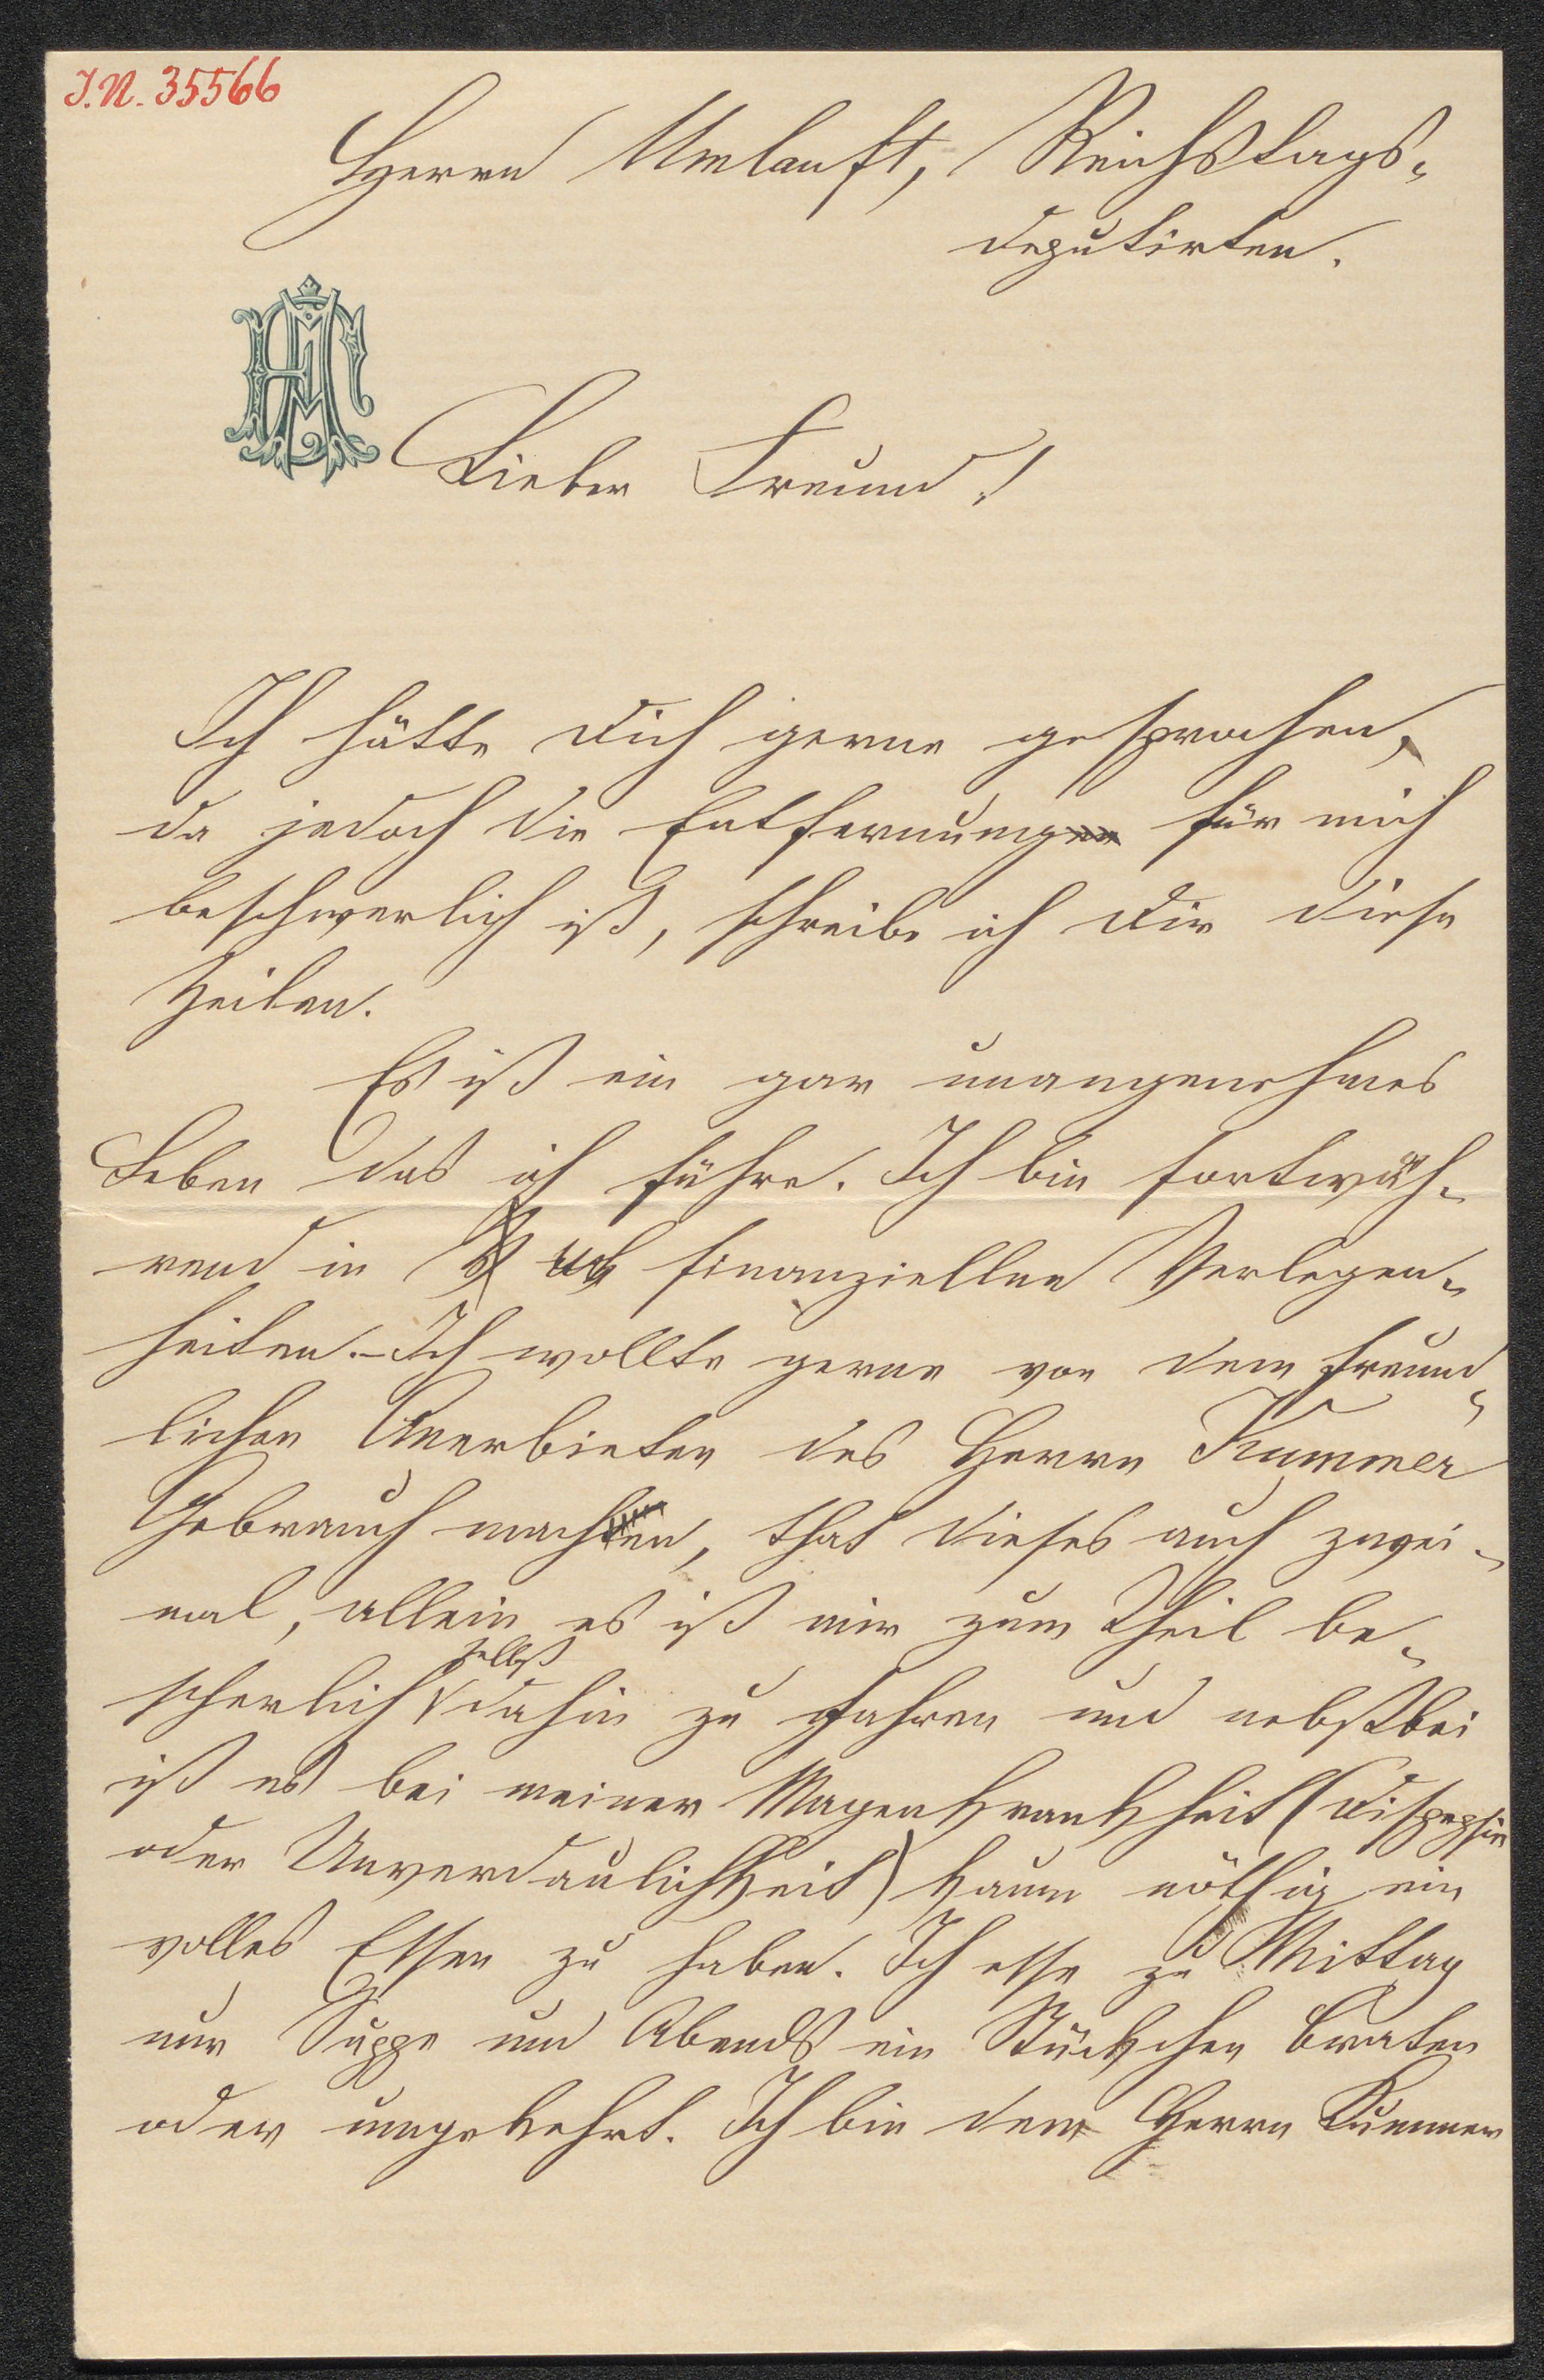 I.N. 35566
Herrn Umlauft, Reichstags-
deputirten.
Lieber Freund!
Ich hätte Dich gerne gesprochen,
da jedoch die Entfernung für mich
beschwerlich ist, schreibe ich Dir diese
Zeilen.
Es ist ein gar unangenehmes
Leben das ich führe. Ich bin fortwäh-
rend in finanziellen Verlegen-
heiten. - Ich wollte gerne von dem freund-
lichen Anerbieten des Herrn Kummer
Gebrauch machen, that dieses auch zwei-
mal, allein es ist mir zum Theil be-
scherlich selbst dahin zu fahren und nebstbei
ist es bei meiner Magenkrankheit (Dispepsie
oder Unverdaulichkeit) kaum nöthig ein
volles Essen zu haben. Ich esse zu Mittag
nur Suppe und Abends ein Stückchen Braten
oder umgekehrt. Ich bin dem Herrn Kummer